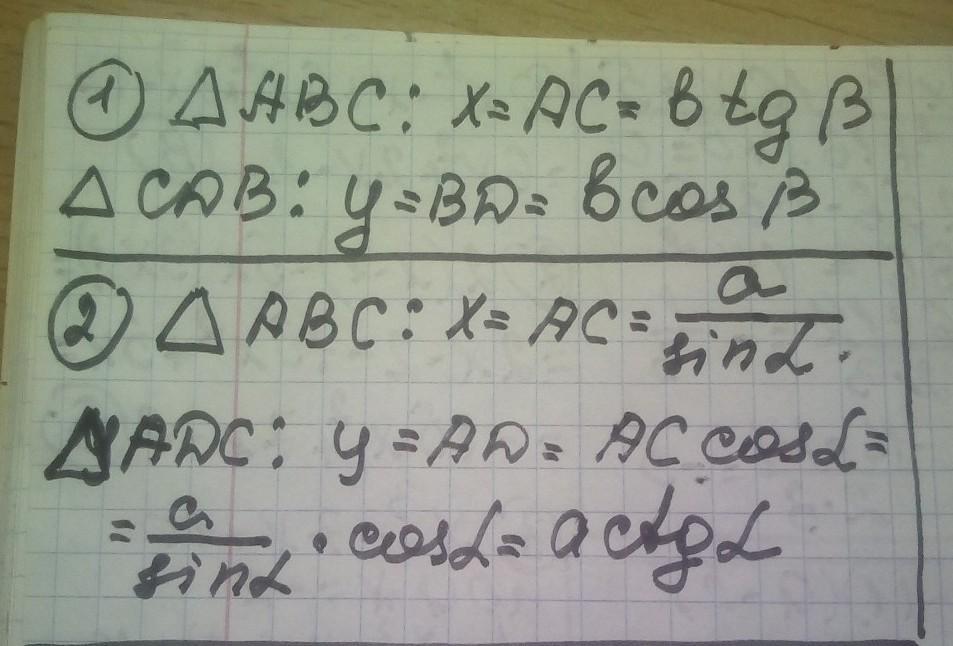 ① △ABC: x = AC = b tg β
△CDB: y = BD = b cos β
② △ABC: x = AC = a / sin α.
△ADC: y = AD = AC cos α =
= a / sin α · cos α = a ctg α